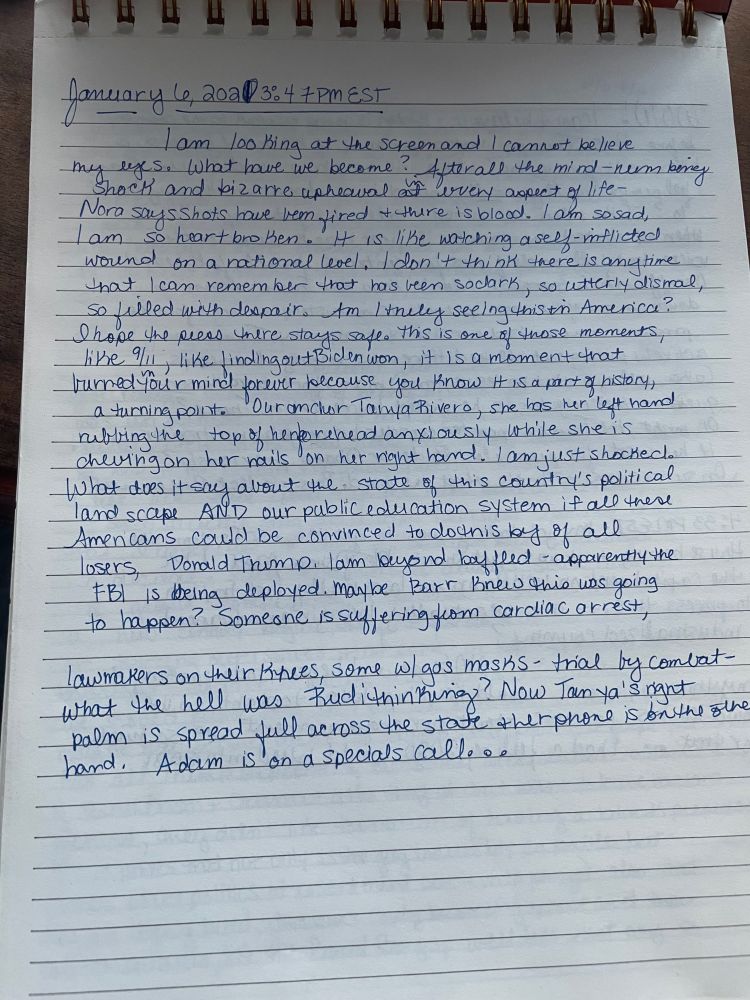 January 6, 2021 3:47PM EST
I am looking at the screen and I cannot believe
my eyes. What have we become? After all the mind-
shock and bizarre upheaval in every aspect of life-
Nora says shots have been fired + there is blood. I am so sad,
I am so heartbroken. It is like watching a self-inflicted
wound on a national level. I don't think there is anytime
that I can remember that has been so dark, so utterly dismal,
so filled with despair. Am I truly seeing this in America?
I hope the press there stays safe. This is one of those moments,
like 9/11, like finding out Biden won, it is a moment that
burned in your mind forever because you know it is a part of history,
a turning point. Our anchor Tanya Rivero, she has her left hand
rubbing the top of her forehead anxiously while she is
chewing on her nails on her right hand. I am just shocked.
What does it say about the state of this country's political
landscape AND our public education system if all these
Americans could be convinced to do this by of all
losers, Donald Trump. I am beyond baffled - apparently the
FBI is being deployed. Maybe Barr knew this was going
to happen? Someone is suffering from cardiac arrest,
lawmakers on their knees, some w/ gas masks - trial by combat-
what the hell was Rudi thinking? Now Tanya's right
palm is spread full across the state + her phone is on the othe
hand. Adam is on a specials call...